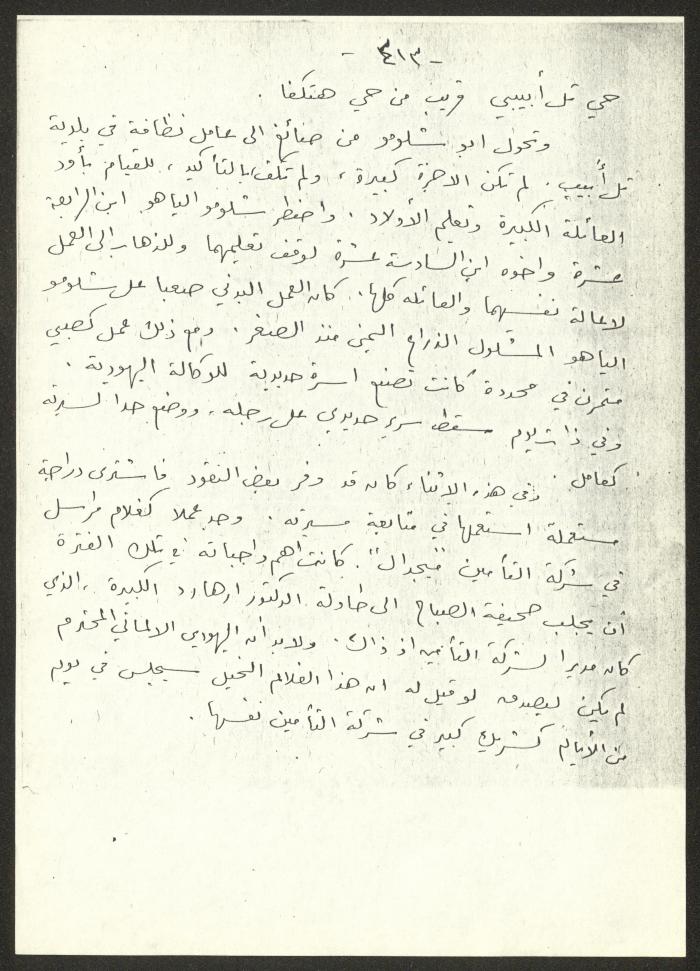 - ٤١٣ -
حي تل أبيبي قريب من حي هتكفا .
وتحول ابو شلومو من صائغ الى عامل نظافة في بلدية
تل أبيب . لم تكن الاجرة كبيرة ، ولم تكف بالتأكيد ، للقيام بأود
العائلة الكبيرة وتعليم الأولاد . واضطر شلومو الياهو ابن الرابعة
عشرة واخوه ابن السادسة عشرة لوقف تعليمهما وللذهاب الى العمل
لاعالة نفسهما والعائله كلها . كان العمل البدني صعبا على شلومو
الياهو المشلول الذراع اليمنى منذ الصغر . ومع ذلك عمل كصبي
متمرن في محددة كانت تصنع اسرة حديدية للوكالة اليهودية .
وفي ذات يوم سقط سرير حديدي على رجله ، ووضع حدا لسيرته
كعامل .
وفي هذه الاثناء كان قد وفر بعض النقود فاشترى دراجة
مستعملة استعملها في متابعة مسيرته . وجد عملا كغلام مراسل
في شركة التأمين "مجدال" . كانت اهم واجباته في تلك الفترة
أن يجلب صحيفة الصباح الى طاولة الدكتور ارهارد الكبيرة ، الذي
كان مديرا لشركة التأمين اذ ذاك . ولابد أن اليهودي الالماني المحترم
لم يكن ليصدق لو قيل له ان هذا الغلام النحيل سيجلس في يوم
من الأيام كشريك كبير في شركة التأمين نفسها .